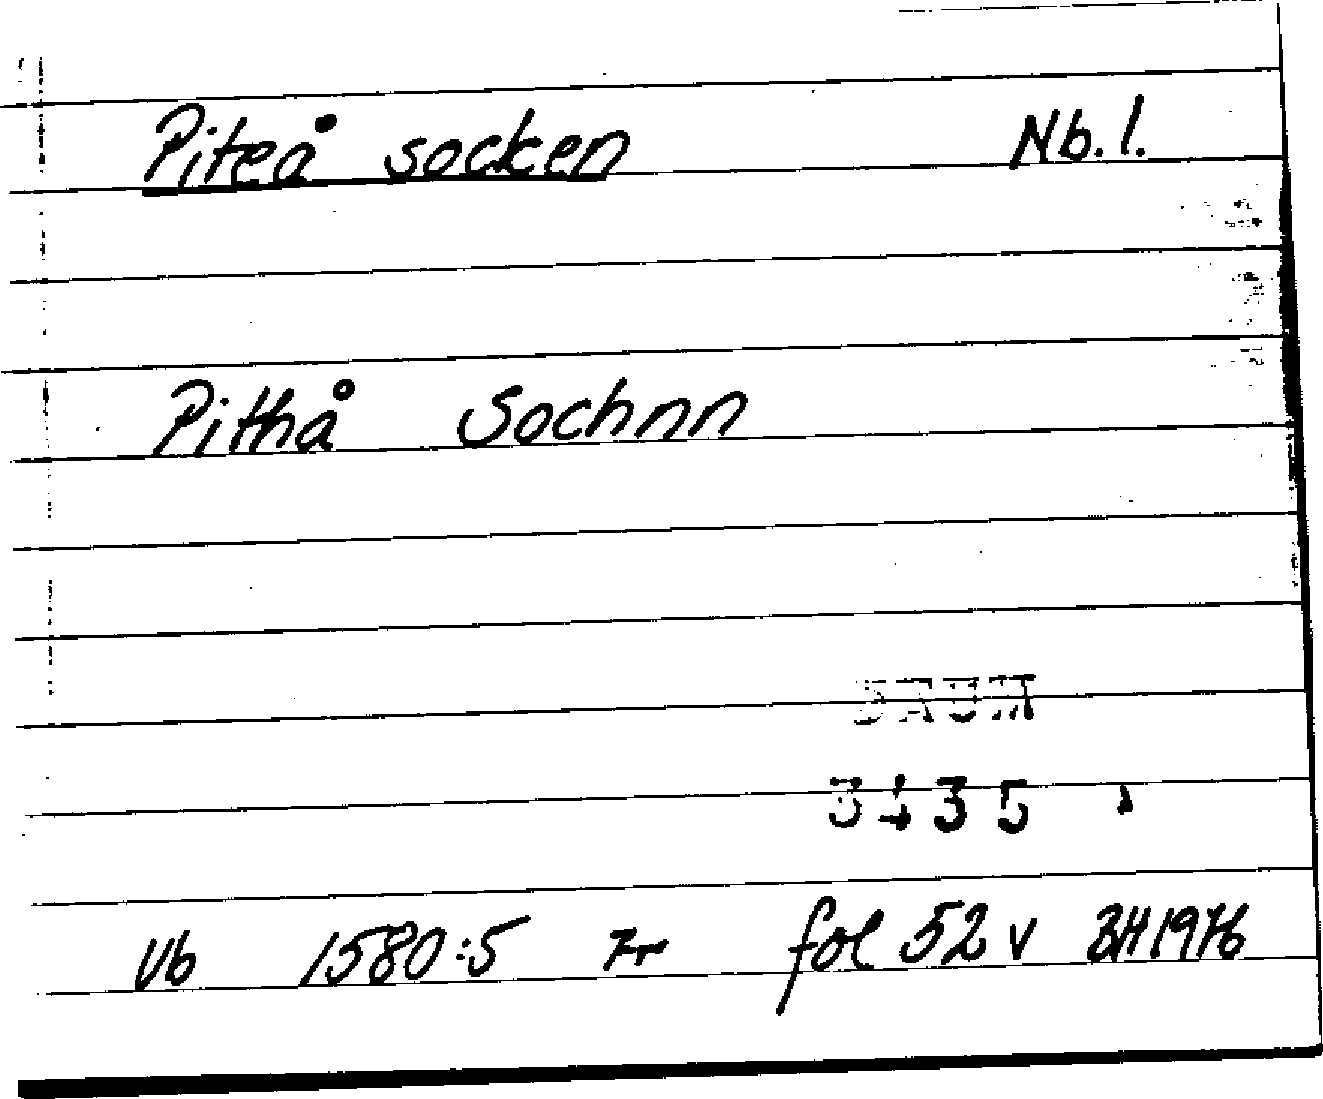 Piteå socken Nb.l.
Pithå Sochnn
DAUM
3435
Vb 1580:5 Fr fol 52 v BH 1976